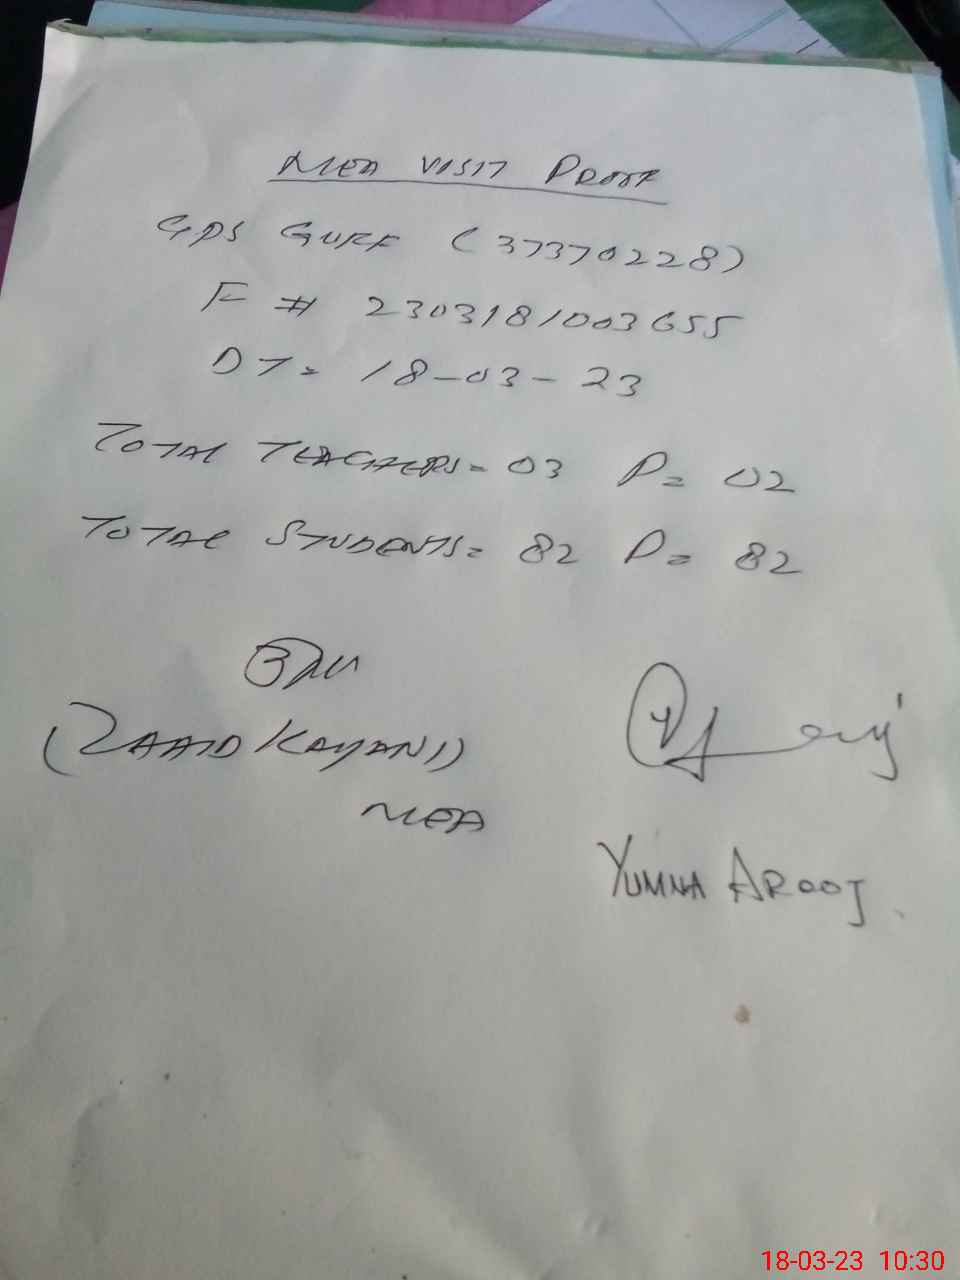 MEA VISIT PROOF
GPS GURF (37370228)
F # 2303181003655
DT= 18-03-23
TOTAL TEACHERS= 03 P= 02
TOTAL STUDENTS= 82 P= 82
(ZAAID KAYANI)
MEA
YUMNA AROOJ.
18-03-23 10:30